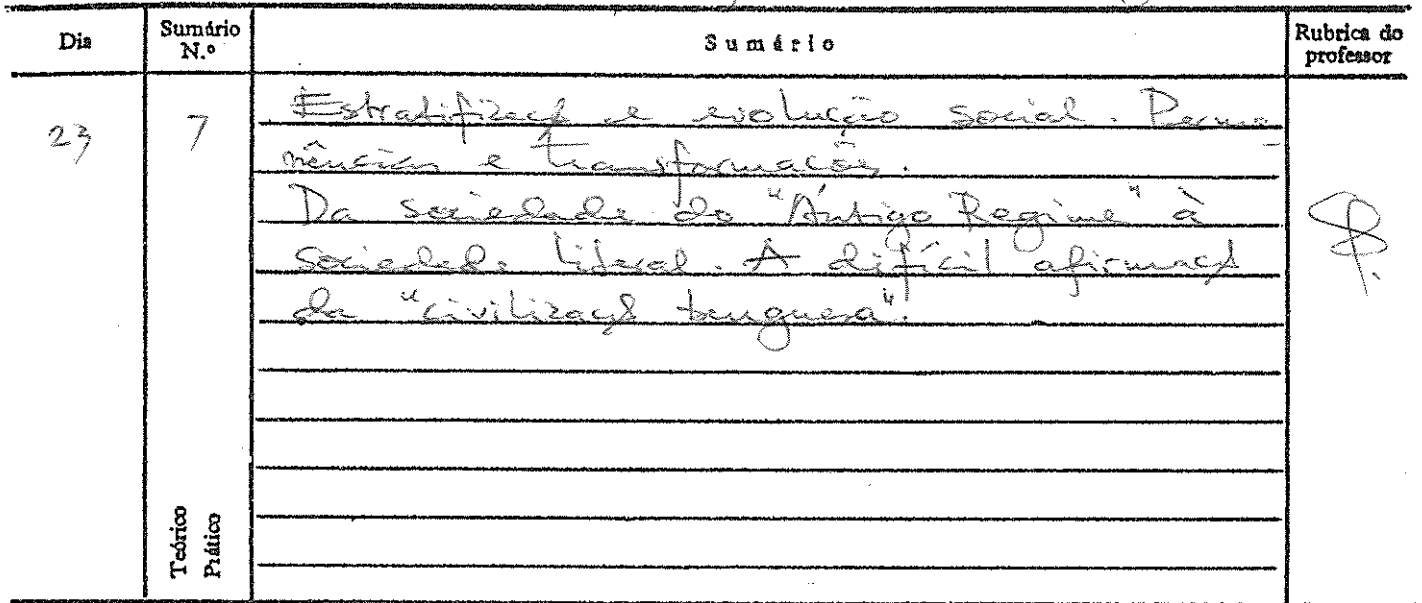 Dia Sumário N.º Sumário Rubrica do professor
23 7 Estratificaçã e evolução social. Perma-
nências e transformações.
Da sociedade do "Antigo Regime" à
sociedade liberal. A difícil afirmaçã
da "civilizaçã burguesa".
Teórico
Prático